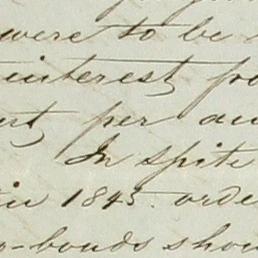 were to be
interest
per
In spite
in 1845. orde
-bonds shou